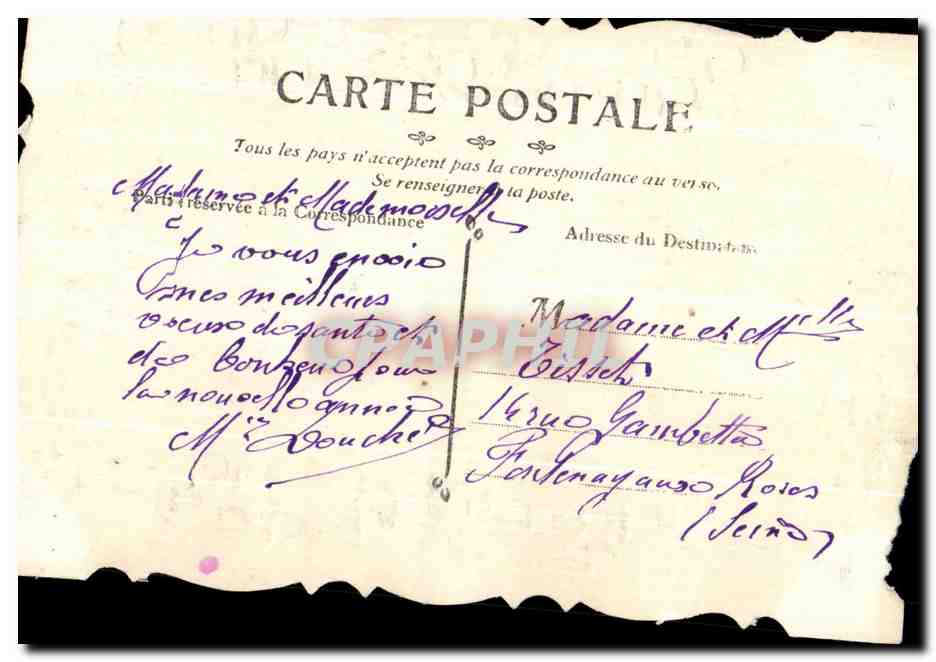 CARTE POSTALE
Tous les pays n'acceptent pas la correspondance au verso.
Se renseigner à la poste.
Partie réservée à la Correspondance
Adresse du Destinataire
Madame et Mademoiselle
Je vous envoie
mes meilleurs
vœux de santé et
de bonheur pour
la nouvelle année
Mie Douchet
Madame et Melle
Tisset
14 rue Gambetta
Fontenay aux Roses
(Seine)
CPAPHIL